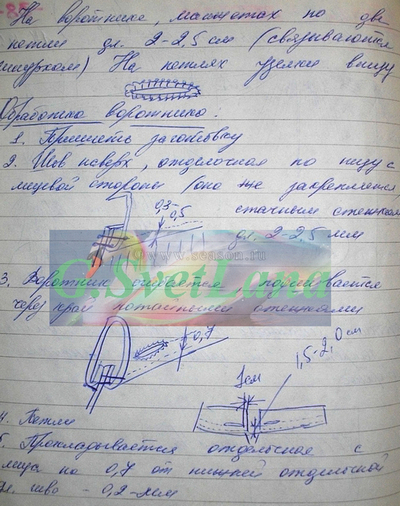 На воротнике, манжетах по две
петли дл. 2-2,5 см (связываются
шнурком) На петлях узелки внизу
Обработка воротника:
1. Пришить заготовку
2. Шов вверх, отделочная по низу с
лицевой стороны (она же закрепляет
0,3-
0,5
стачным стежком
дл. 2-2,5 мм
© www.season.ru
G.SvetLana
3. Воротник подшивается
через край потайными стежками
0,7
1,5-2,0 см
1 см
4. Петли
5. Прокладывается отдельочная с
лица на 0,7 от нижней отделочной
дл. шва